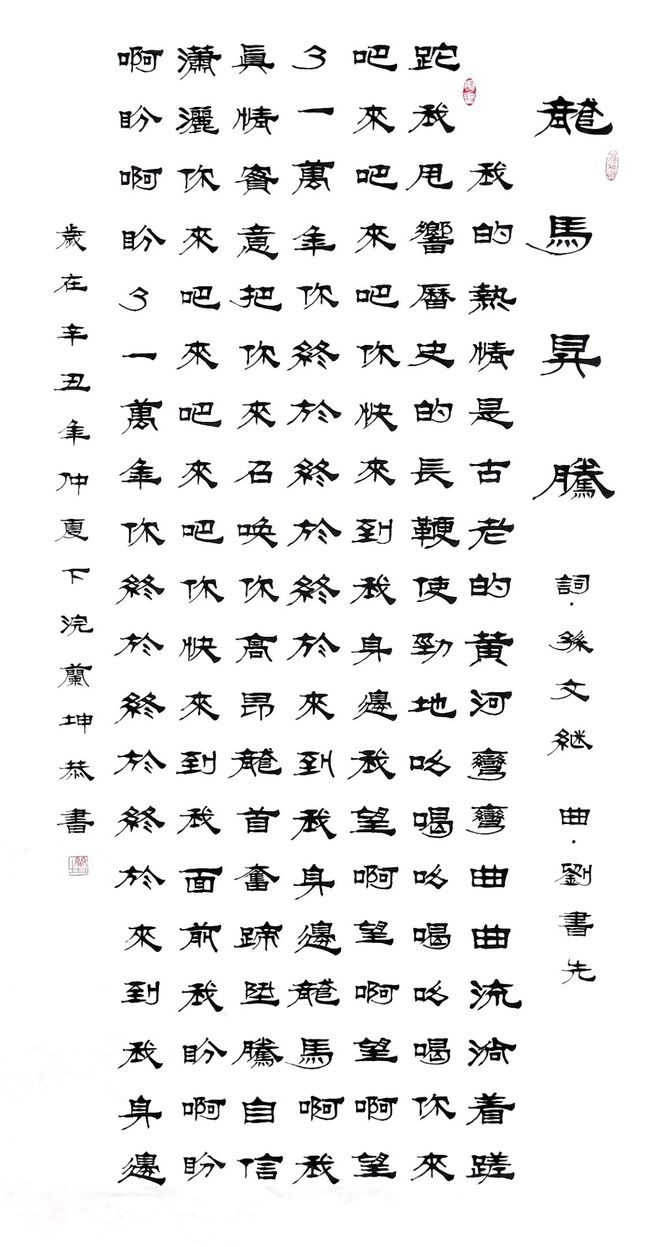 龍馬昇騰 詞·孫文継 曲·劉書先
我的熱情是古老的黃河彎彎曲曲流淌着蹉
跎我甩響曆史的長鞭使勁地吆喝吆喝吆喝你來
吧來吧來吧你快來到我身邊我望啊望啊望啊望
了一萬年你終於終於終於來到我身邊龍馬啊我
眞情實意把你來召唤你高昂龍首奮蹄陞騰自信
瀟灑你來吧來吧來吧你快來到我面前我盼啊盼
啊盼啊盼了一萬年你終於終於終於來到我身邊
歲在辛丑年仲夏下浣蘭坤恭書